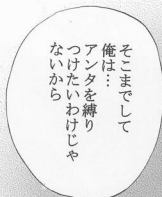 そこまでして
俺は…
アンタを縛り
つけたいわけじゃ
ないから